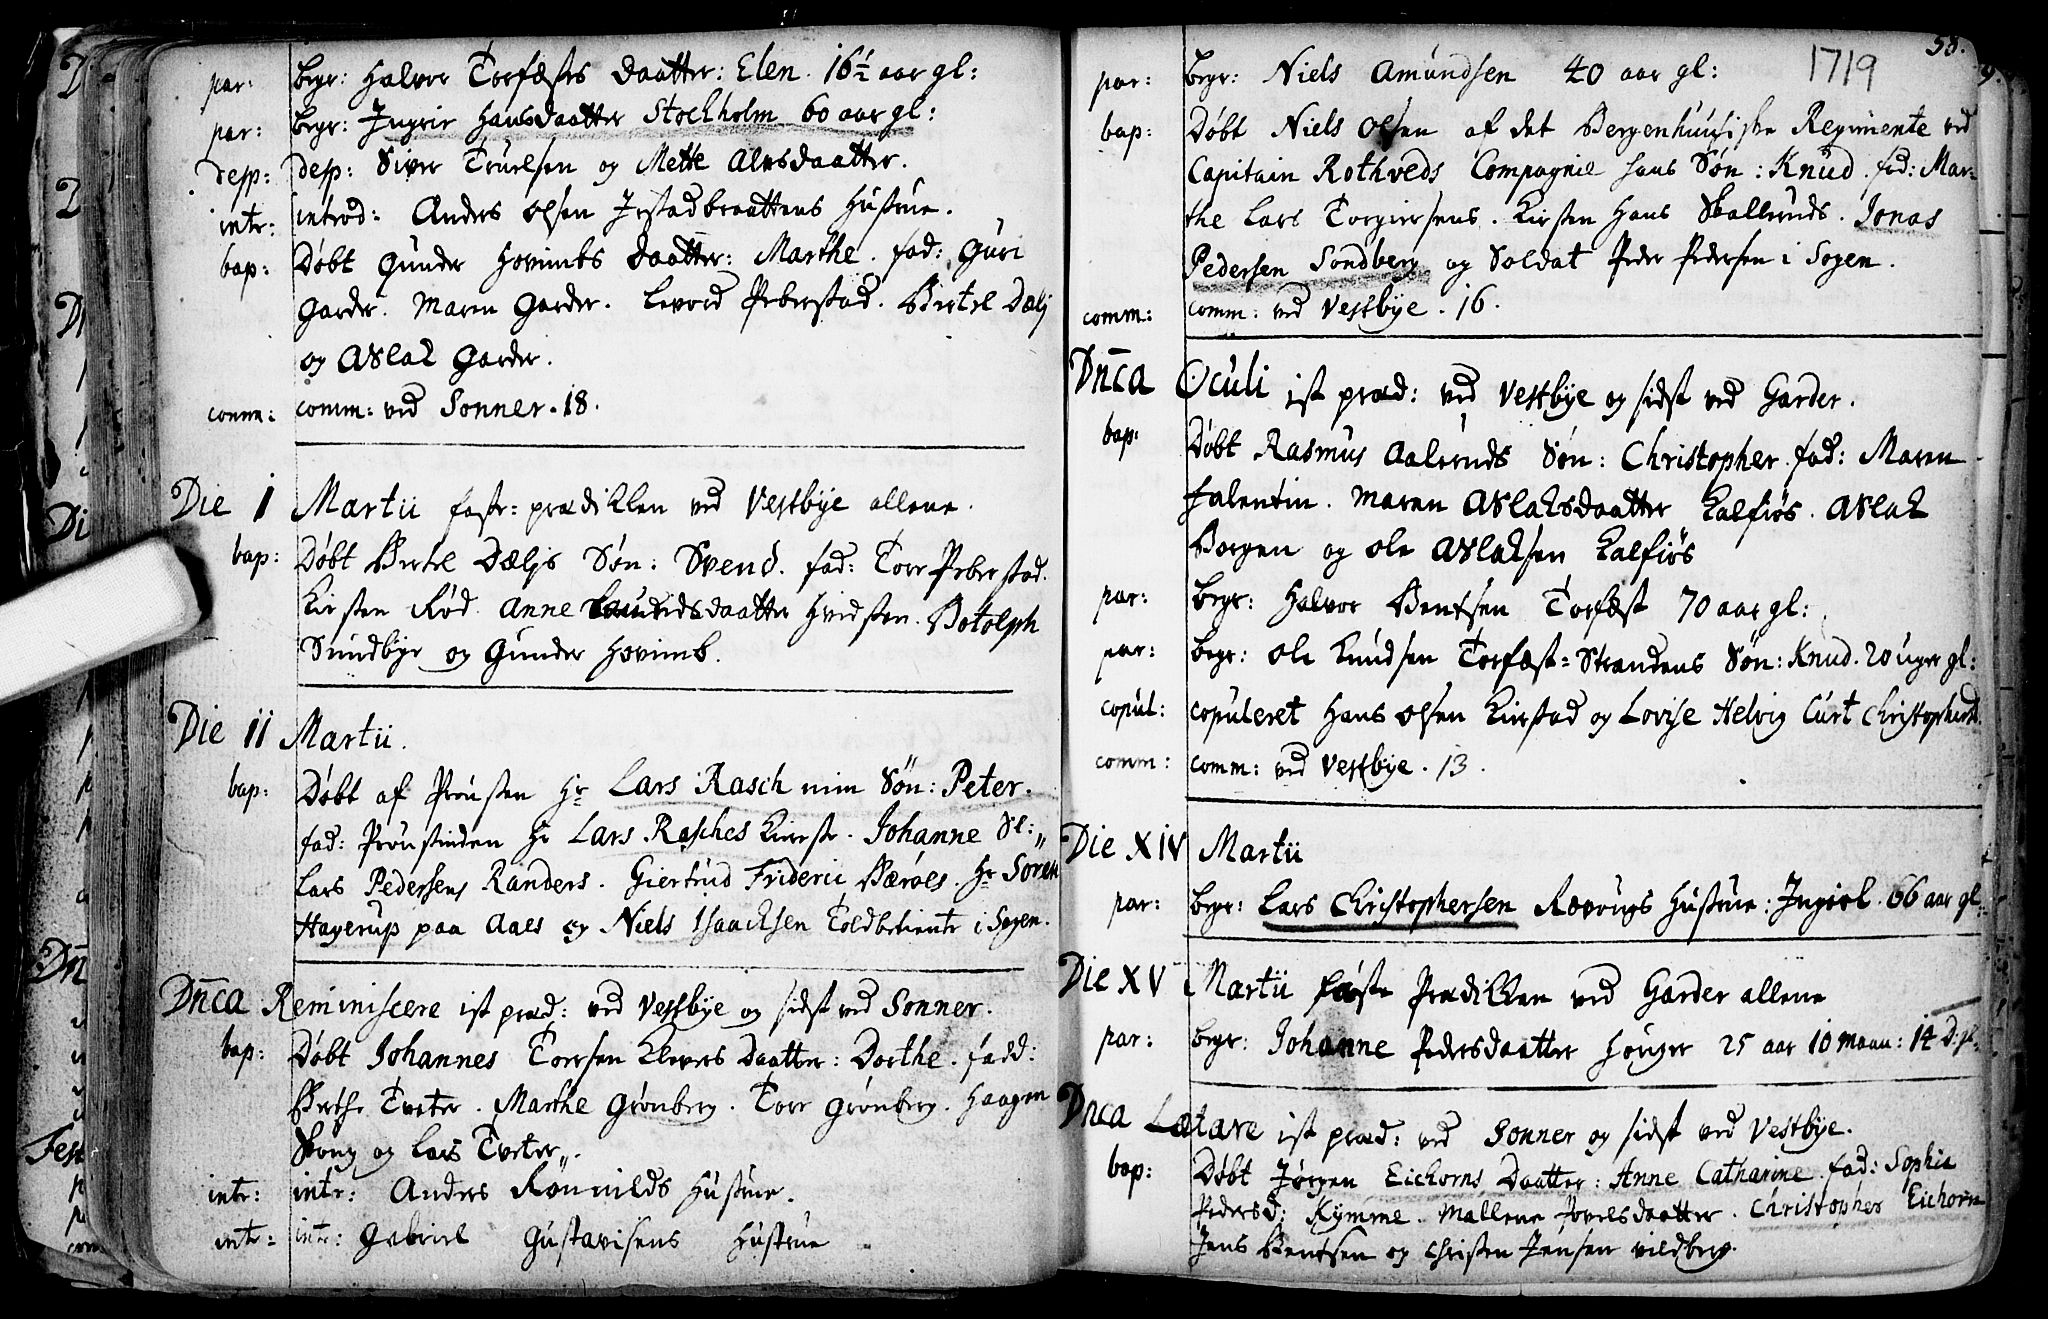 par: begr: Halvor Torfæstes daatter: Elen. 16½ aar gl:
par: begr: Ingrir Hansdaatter Stockholm 60 aar gl:
desp: desp: Siver Truelsen og Mette Alvsdaatter.
intr: introd: Anders Olsen Jystadbraattens Hustrue.
bap: Døbt Gunder Hovimbs daatter: Marthe. fad: Guri
Garder. Maren Garder. Levord Peberstad. Bertel Dælj
og Aslak Garder.
comm: comm: ved Sonner. 18.
Die I Martii faste=prædikken ved Vestbÿe allene.
bap: Døbt Bertel Dæljs Søn: Svend. fad: Tore Peberstad.
Kirsten Rød. Anne Lauridsdaatter Hvidsten. Botolph
Sundbye og Gunder Hovimb.
Die II Martii.
bap: Døbt af Prousten Hr Lars Rasch min Søn: Peter.
fad: Proustinden Hr Lars Rasches Kierste. Johanne Sl:
Lars Pedersens Randers. Giertrud Friderii Bærøes. Hr Søren
Hagerup paa Aaes og Niels Isaacksen Toldbetiente i Sogen.
Dn̄ca Reminiscere ist præd: ved Vestbÿe og sidst ved Sonner.
bap: Døbt Johannes Toresen Klevers Daatter: Dorthe. fadd:
Berthe Tveter. Marthe Grønberg. Tore Grønberg. Haagen
Skoug og Lars Tveter.
intr: intr: Anders Rønnilds Hustrue.
intr: intr: Gabriel Gustavisens Hustrue
58.
1719
par: begr: Niels Amundsen 40 aar gl:
bap: Døbt Niels Olsen af det Bergenhuusiske Regimente ved
Capitain Rothveds Compagnie hans Søn: Knud. fad: Mar=
the Lars Torgiersens. Kirsten Hans Skallerudes. Jonas
Pedersen Sondberg og Soldat Peder Pedersen i Sogen.
comm: comm: ved Vestbye. 16.
Dn̄ca Oculi ist præd: ved Vestbÿe og sidst ved Garder.
bap: Døbt Rasmus Aaleruds Søn: Christopher. fad: Maren
Falentin. Maren Aslaksdaatter Kalfiøs. Aslak
Borgen og Ole Aslaksen Kalfiøs
par: begr: Halvor Bentsen Torfæst 70 aar gl:
par: begr: Ole Knudsen Torfæst=Strandens Søn: Knud. 20 uger gl:
copul: copuleret Hans Olsen Kirstad og Lovise Helvig Curt Christophersd.
comm: comm: ved Vestbÿe. 13.
Die XIV Martii
par: begr: Lars Christophersen Rovougs Hustrue: Ingiel. 66 aar gl:
Die XV Martii faste Prædikken ved Garder allene
par: begr: Johanne Pedersdaatter Houger 25 aar 10 maan: 14 D: gl:
Dnca Lætare ist præd: ved Sonner og sidst ved Vestbÿe.
bap: Døbt Jørgen Eichorns Daatter: Anne Catharine. fad: Sophie
Pedersd: Kymme. Mallene Povelsdaatter. Christopher Eichorn
Jens Bentsen og Christen Jensen Vildberg.